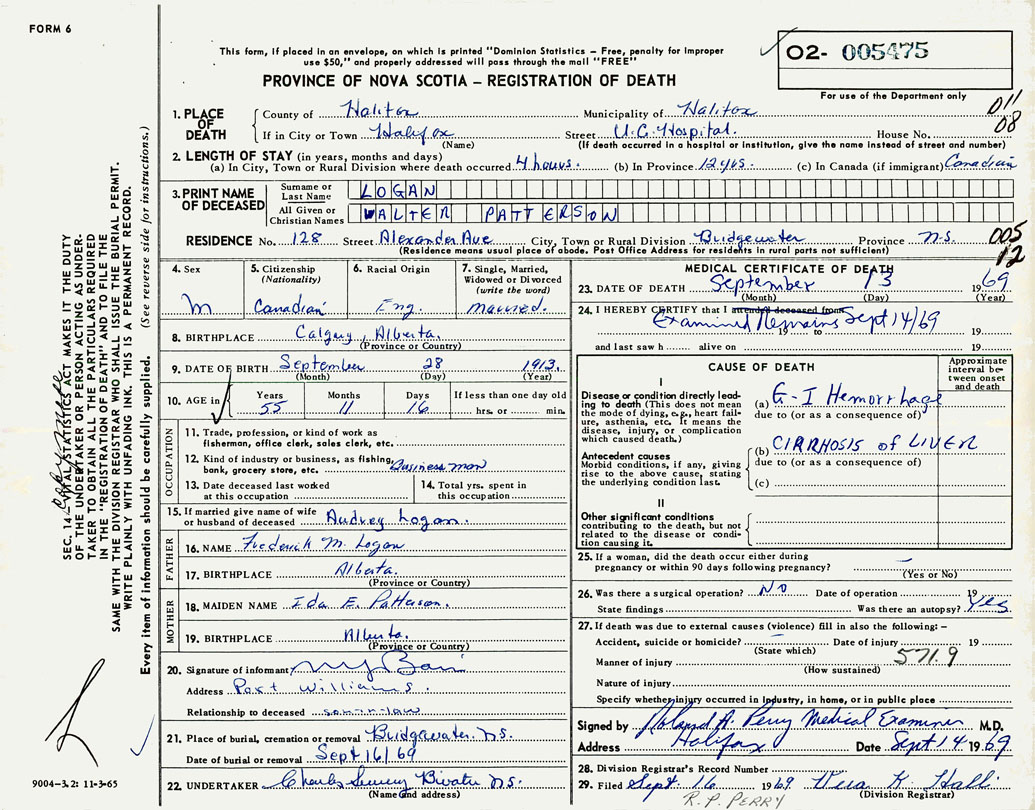 FORM 6
This form, if placed in an envelope, on which is printed "Dominion Statistics – Free, penalty for improper
use $50," and properly addressed will pass through the mail "FREE"
PROVINCE OF NOVA SCOTIA – REGISTRATION OF DEATH
O2- 005475
For use of the Department only
011
08
1. PLACE OF DEATH
County of Halifax Municipality of Halifax
If in City or Town Halifax Street U.G. Hospital. House No.
(Name) (If death occurred in a hospital or institution, give the name instead of street and number)
2. LENGTH OF STAY (in years, months and days)
(a) In City, Town or Rural Division where death occurred 4 hours. (b) In Province 12 yrs. (c) In Canada (if immigrant) Canadian
3. PRINT NAME OF DECEASED
Surname or Last Name LOGAN
All Given or Christian Names WALTER PATTERSON
RESIDENCE No. 128 Street Alexander Ave City, Town or Rural Division Bridgewater Province N.S.
(Residence means usual place of abode. Post Office Address for residents in rural parts not sufficient)
005
12
4. Sex
M
5. Citizenship
(Nationality)
Canadian
6. Racial Origin
Eng.
7. Single, Married,
Widowed or Divorced
(write the word)
married.
8. BIRTHPLACE Calgary, Alberta.
(Province or Country)
9. DATE OF BIRTH September 28 1913.
(Month) (Day) (Year)
10. AGE in
Years Months Days If less than one day old
55 11 16 hrs. or min.
OCCUPATION
11. Trade, profession, or kind of work as
fisherman, office clerk, sales clerk, etc.
12. Kind of industry or business, as fishing,
bank, grocery store, etc. Business man
13. Date deceased last worked
at this occupation
14. Total yrs. spent in
this occupation
15. If married give name of wife
or husband of deceased Audrey Logan.
FATHER
16. NAME Frederick M. Logan
17. BIRTHPLACE Alberta.
(Province or Country)
MOTHER
18. MAIDEN NAME Ida E. Patterson.
19. BIRTHPLACE Alberta.
(Province or Country)
20. Signature of informant
Address Port Williams.
Relationship to deceased son-in-law
21. Place of burial, cremation or removal Bridgewater N.S.
Date of burial or removal Sept 16/69
22. UNDERTAKER Charles N.S.
(Name and address)
MEDICAL CERTIFICATE OF DEATH
23. DATE OF DEATH September 13 1969
(Month) (Day) (Year)
24. I HEREBY CERTIFY that I attended deceased from
Examined Remains Sept 14/69
19 19
and last saw h alive on 19
CAUSE OF DEATH
Approximate
interval be-
tween onset
and death
I
Disease or condition directly lead-
ing to death (This does not mean
the mode of dying, e.g., heart fail-
ure, asthenia, etc. It means the
disease, injury, or complication
which caused death.)
(a) G-I Hemorrhage
due to (or as a consequence of)
Antecedent causes
Morbid conditions, if any, giving
rise to the above cause, stating
the underlying condition last.
(b) CIRRHOSIS of LIVER
due to (or as a consequence of)
(c)
II
Other significant conditions
contributing to the death, but not
related to the disease or condi-
tion causing it.
25. If a woman, did the death occur either during
pregnancy or within 90 days following pregnancy?
(Yes or No)
26. Was there a surgical operation? No Date of operation 19
State findings Was there an autopsy? Yes
27. If death was due to external causes (violence) fill in also the following: –
Accident, suicide or homicide? Date of injury 19
(State which)
Manner of injury 571.9
(How sustained)
Nature of injury
Specify whether injury occurred in industry, in home, or in public place
Signed by Roland A. Perry Medical Examiner M.D.
Address Halifax Date Sept 14 1969
28. Division Registrar's Record Number
29. Filed Sept. 16 1969. Vera K. Hall
(Division Registrar)
R.P. PERRY
SEC. 14 – VITAL STATISTICS ACT MAKES IT THE DUTY
OF THE UNDERTAKER OR PERSON ACTING AS UNDER-
TAKER TO OBTAIN ALL THE PARTICULARS REQUIRED
IN THE "REGISTRATION OF DEATH" AND TO FILE THE
SAME WITH THE DIVISION REGISTRAR WHO SHALL ISSUE THE BURIAL PERMIT.
WRITE PLAINLY WITH UNFADING INK. THIS IS A PERMANENT RECORD.
Every item of information should be carefully supplied. (See reverse side for instructions.)
9004-3.2: 11-3-65